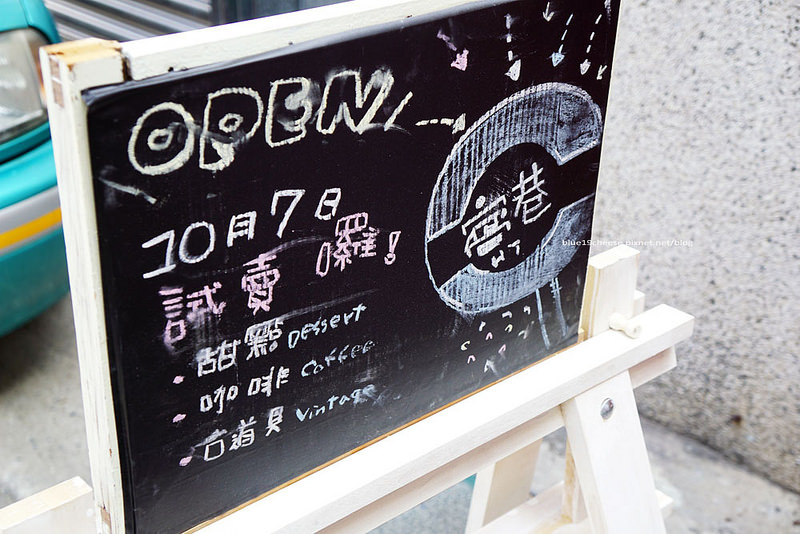 OPEN
10月7日
試賣囉!
甜點 Dessert
咖啡 Coffee
古道具 Vintage
窩巷
WJ
blue19cheese.pixnet.net/blog